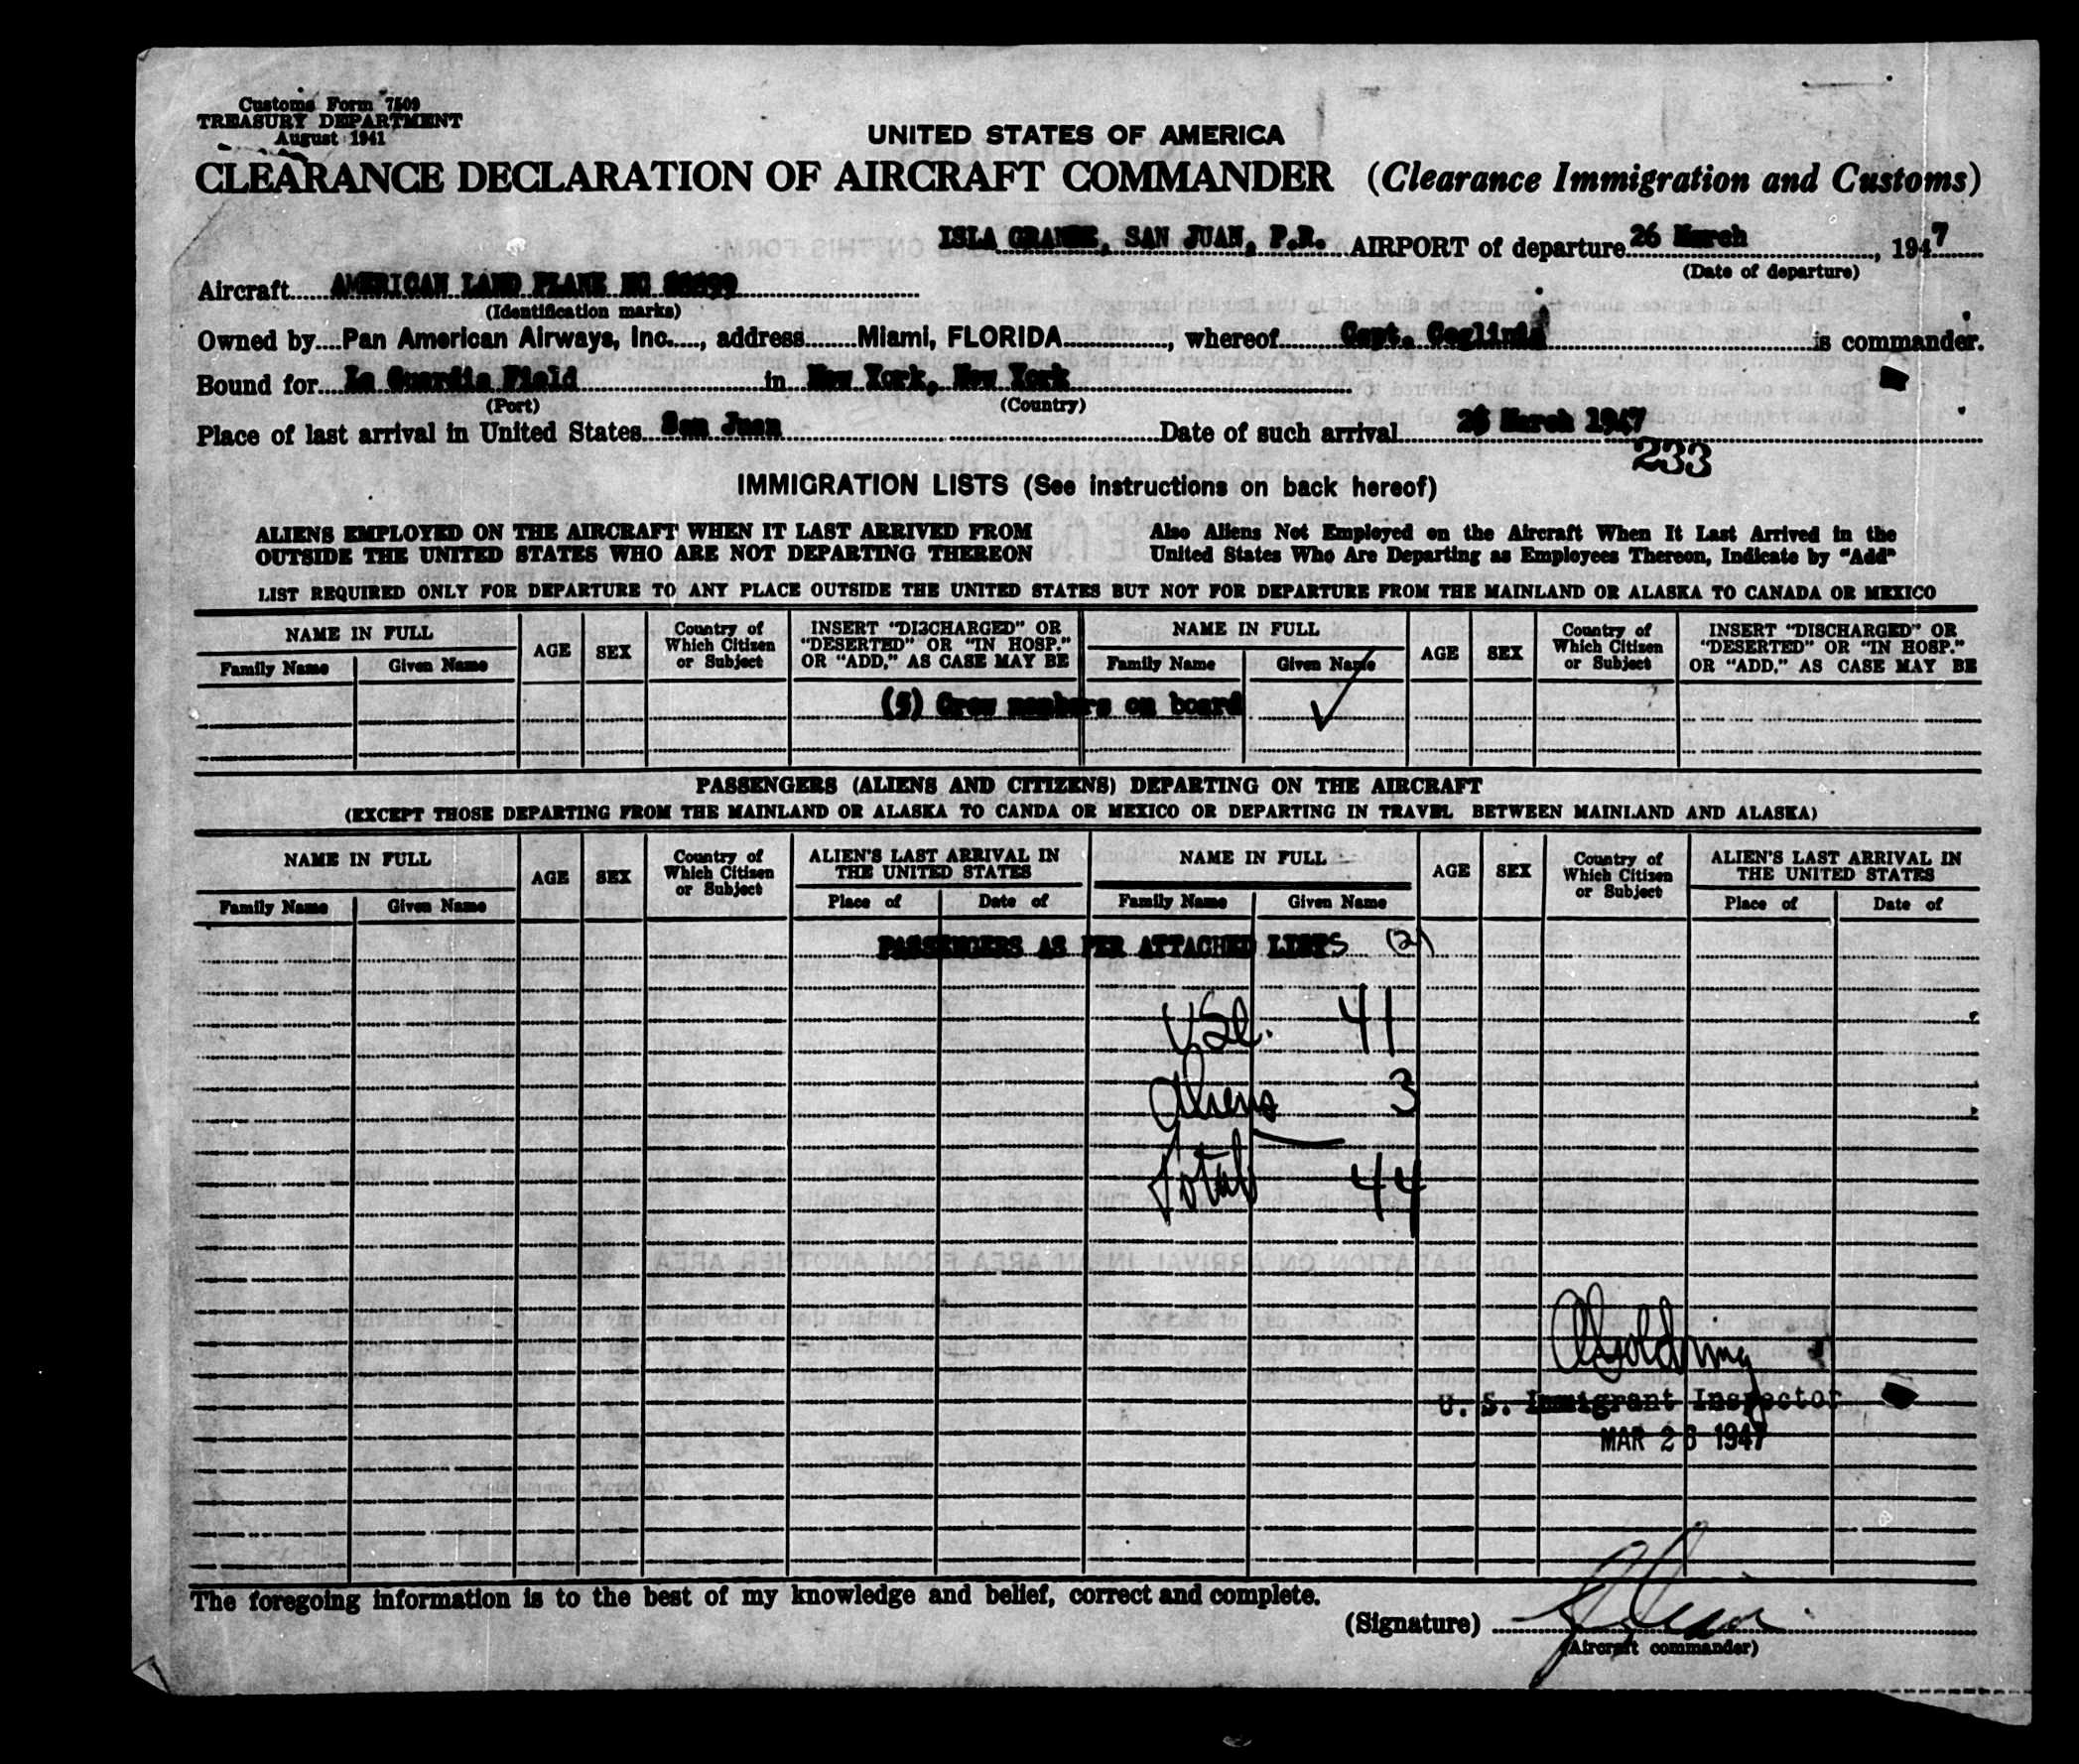 Customs Form 7509
TREASURY DEPARTMENT
August 1941
UNITED STATES OF AMERICA
CLEARANCE DECLARATION OF AIRCRAFT COMMANDER (Clearance Immigration and Customs)
ISLA GRANDE, SAN JUAN, P.R. AIRPORT of departure 26 March, 1947
(Date of departure)
Aircraft AMERICAN LAND PLANE NC
(Identification marks)
Owned by Pan American Airways, Inc., address Miami, FLORIDA, whereof Capt. is commander.
Bound for La Guardia Field in New York, New York
(Port) (Country)
Place of last arrival in United States San Juan Date of such arrival 26 March 1947
233
IMMIGRATION LISTS (See instructions on back hereof)
ALIENS EMPLOYED ON THE AIRCRAFT WHEN IT LAST ARRIVED FROM
OUTSIDE THE UNITED STATES WHO ARE NOT DEPARTING THEREON
Also Aliens Not Employed on the Aircraft When It Last Arrived in the
United States Who Are Departing as Employees Thereon, Indicate by "Add"
LIST REQUIRED ONLY FOR DEPARTURE TO ANY PLACE OUTSIDE THE UNITED STATES BUT NOT FOR DEPARTURE FROM THE MAINLAND OR ALASKA TO CANADA OR MEXICO
NAME IN FULL
Family Name Given Name
AGE
SEX
Country of
Which Citizen
or Subject
INSERT "DISCHARGED" OR
"DESERTED" OR "IN HOSP."
OR "ADD," AS CASE MAY BE
NAME IN FULL
Family Name Given Name
AGE
SEX
Country of
Which Citizen
or Subject
INSERT "DISCHARGED" OR
"DESERTED" OR "IN HOSP."
OR "ADD," AS CASE MAY BE
(5) Crew members on board
PASSENGERS (ALIENS AND CITIZENS) DEPARTING ON THE AIRCRAFT
(EXCEPT THOSE DEPARTING FROM THE MAINLAND OR ALASKA TO CANDA OR MEXICO OR DEPARTING IN TRAVEL BETWEEN MAINLAND AND ALASKA)
NAME IN FULL
Family Name Given Name
AGE
SEX
Country of
Which Citizen
or Subject
ALIEN'S LAST ARRIVAL IN
THE UNITED STATES
Place of Date of
NAME IN FULL
Family Name Given Name
AGE
SEX
Country of
Which Citizen
or Subject
ALIEN'S LAST ARRIVAL IN
THE UNITED STATES
Place of Date of
PASSENGERS AS PER ATTACHED LISTS (2)
USC. 41
Aliens 3
Total 44
U. S. Immigrant Inspector
MAR 26 1947
The foregoing information is to the best of my knowledge and belief, correct and complete.
(Signature)
(Aircraft commander)